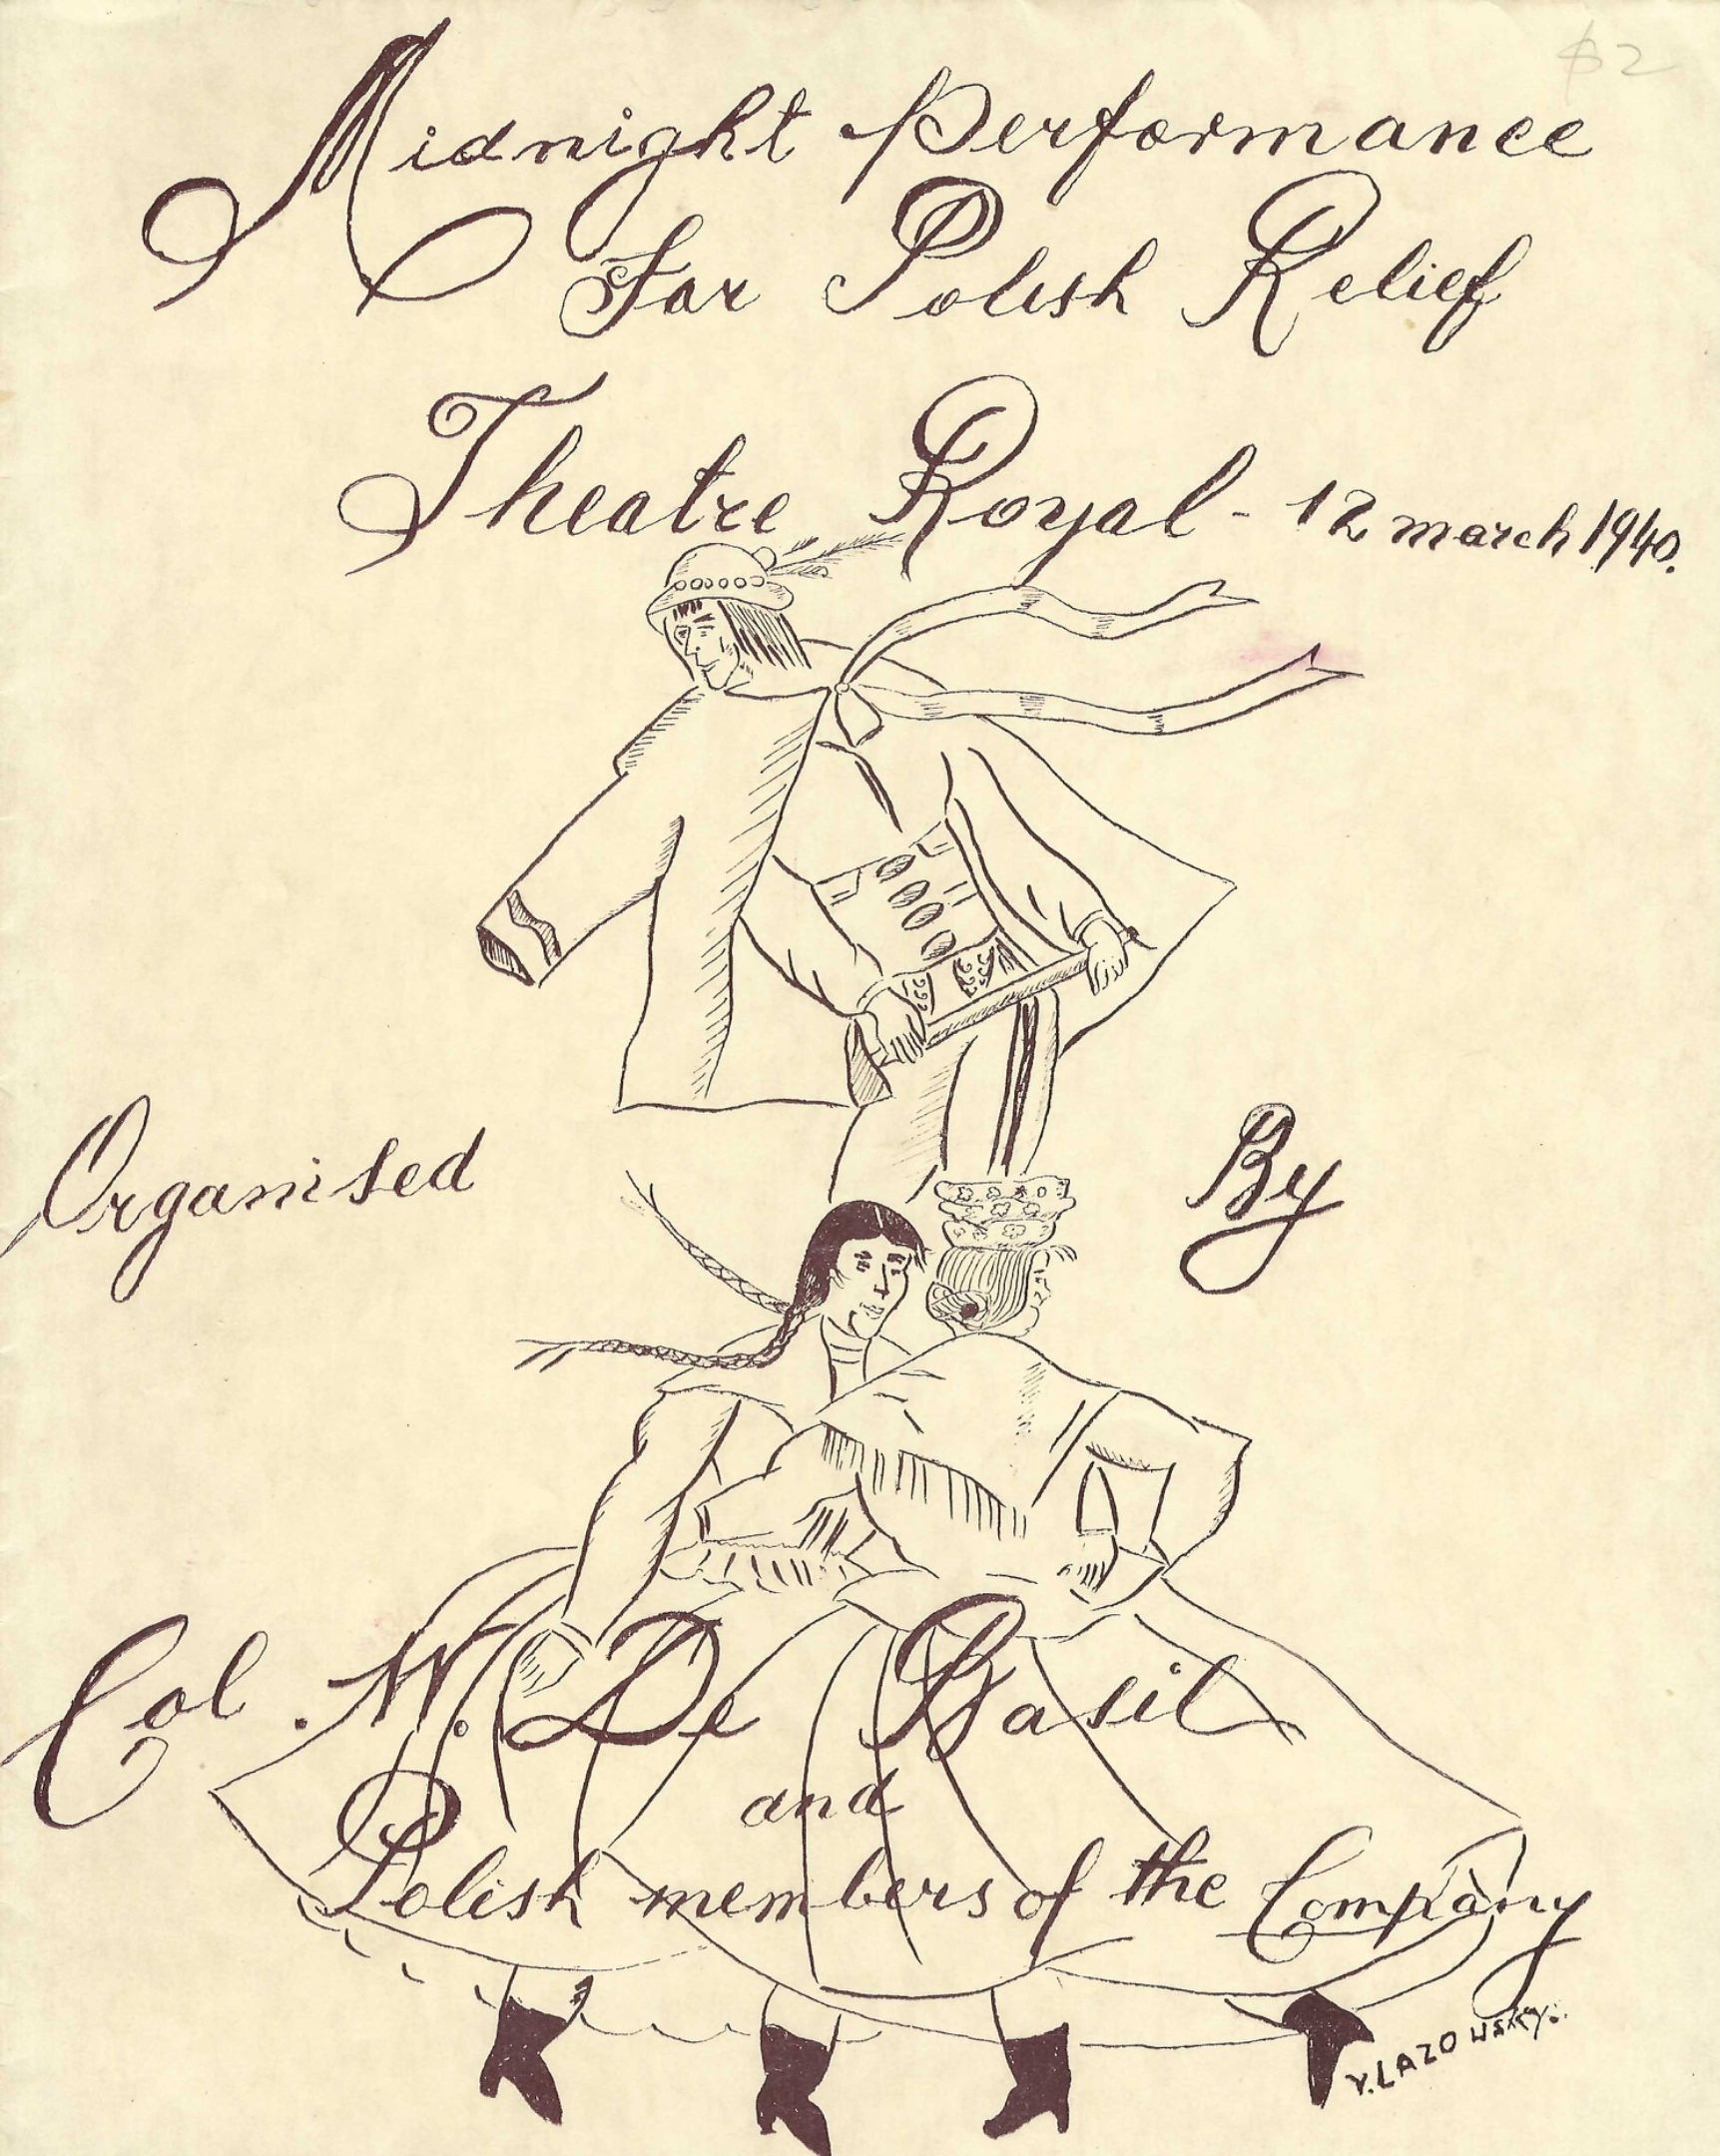 $2
Midnight Performance
For Polish Relief
Theatre Royal - 12 march 1940.
Organised By
Col. W. De Basil
and
Polish members of the Company
Y. LAZOWSKY.